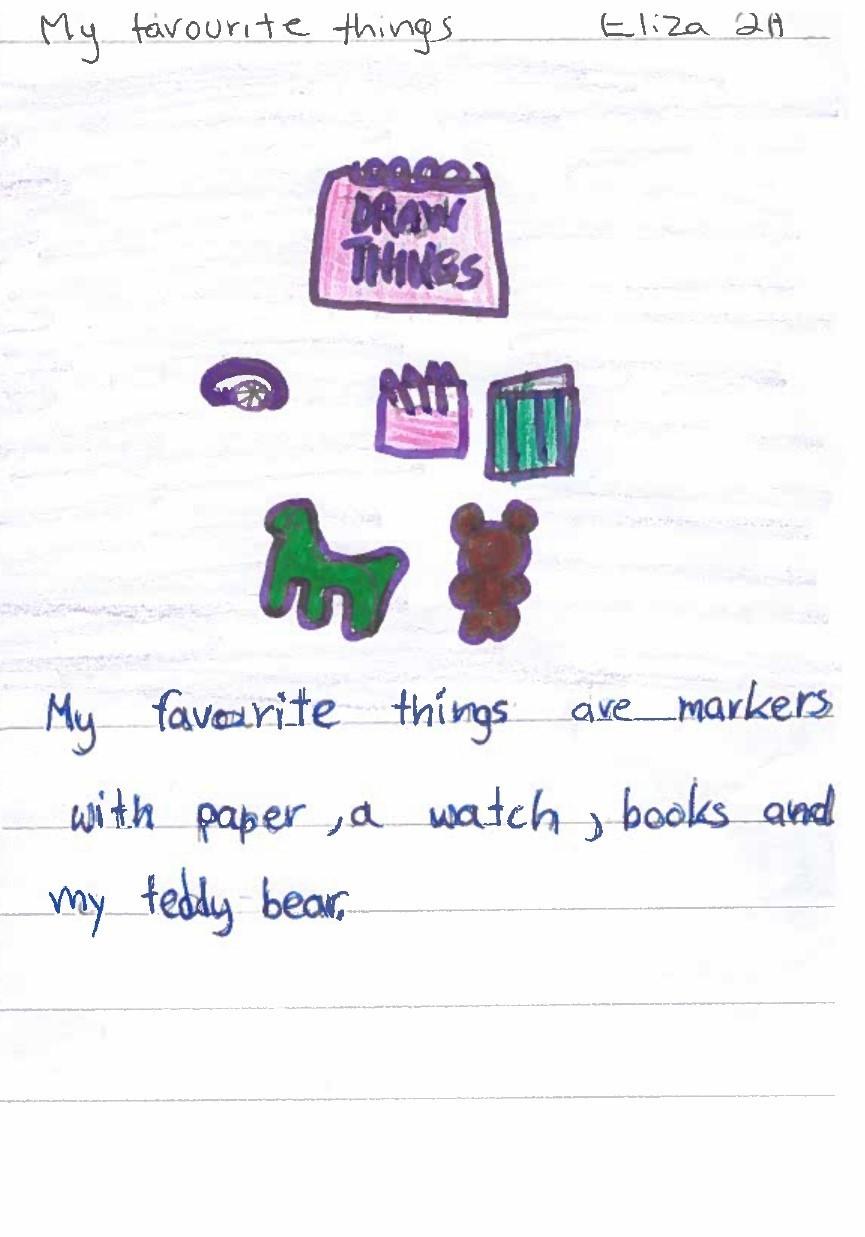 My favourite things Eliza 2A
DRAW
THINGS
My favourite things are markers
with paper, a watch, books and
my teddy bear.